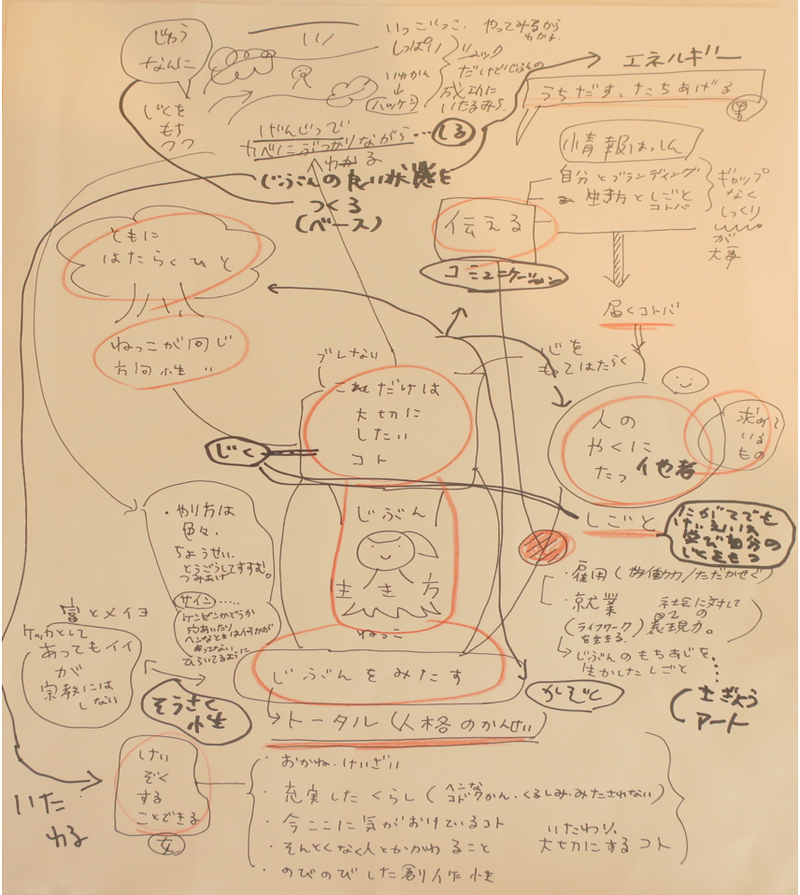 じゅう
なんに
じくを
もち
つつ
いっこいっこ、やってみるから
わかる
しっぱい
いわかん
↓
ハッケン
だけどじぶんの
成功に
いたるみち
げんじつで
かべにぶつかりながら・・・しる
わかる
じぶんの良い状態を
つくる
(ベース)
エネルギー
うちだす、たちあげる
男
情報はっしん
自分とブランディング
生き方としごと
コトバ
ギャップ
なく
しっくり
が
大事
伝える
コミュニケーション
届くコトバ
ともに
はたらくひと
ねっこが同じ
方向性
ブレない
これだけは
大切に
したい
コト
じく
心を
もってはたらく
人の
やくに
たつ 他者
求めて
いる
もの
しごと
じぶん
生き方
ねっこ
じぶんをみたす
・やり方は
色々、
ちょうせい、
とうごうしてすすむ。
つみあげ
サイン・・・・・
ケンゼンかどうか
ひらいてるように
富とメイヨ
ケッカとして
あってもイイ
が
宗教には
しない
そうさく
性
・雇用(労働力/ただかせぐ)
・就業
(ライフワーク)
を生きる
社会に対して
表現力。
じぶんのもちあじを、
生かしたしごと
かしごと
アート
トータル(人格のかんせい)
けい
ぞく
する
ことできる
女
いた
わる
・おかね・けいざい
・充実したくらし(ヘンな
くるしみ・みたされない)
・今ここに気がおけているコト
・そんとくなく人とかかわること
いたわり、
大切にするコト
・のびのびした創作性